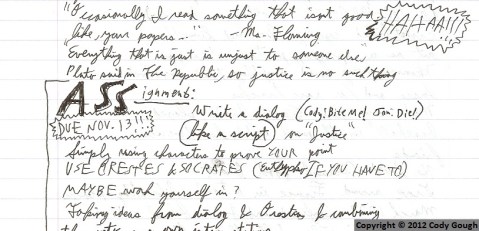 "Occasionally I read something that isn't good,
like your papers..." —Ms. Fleming
HAHAA!!!
Everything that is just is unjust to someone else.
Plato said in The Republic, so justice is no such thing
ASSignment:
DUE NOV. 13!!
Write a dialog (Cody: Bite Me! Jon: Die!)
(like a script) on "Justice"
Simply using characters to prove YOUR point
USE ORESTES & SOCRATES (Euthyphro IF YOU HAVE TO)
MAYBE work yourself in?
Taking ideas from dialog & Orestes & combining
Copyright © 2012 Cody Gough